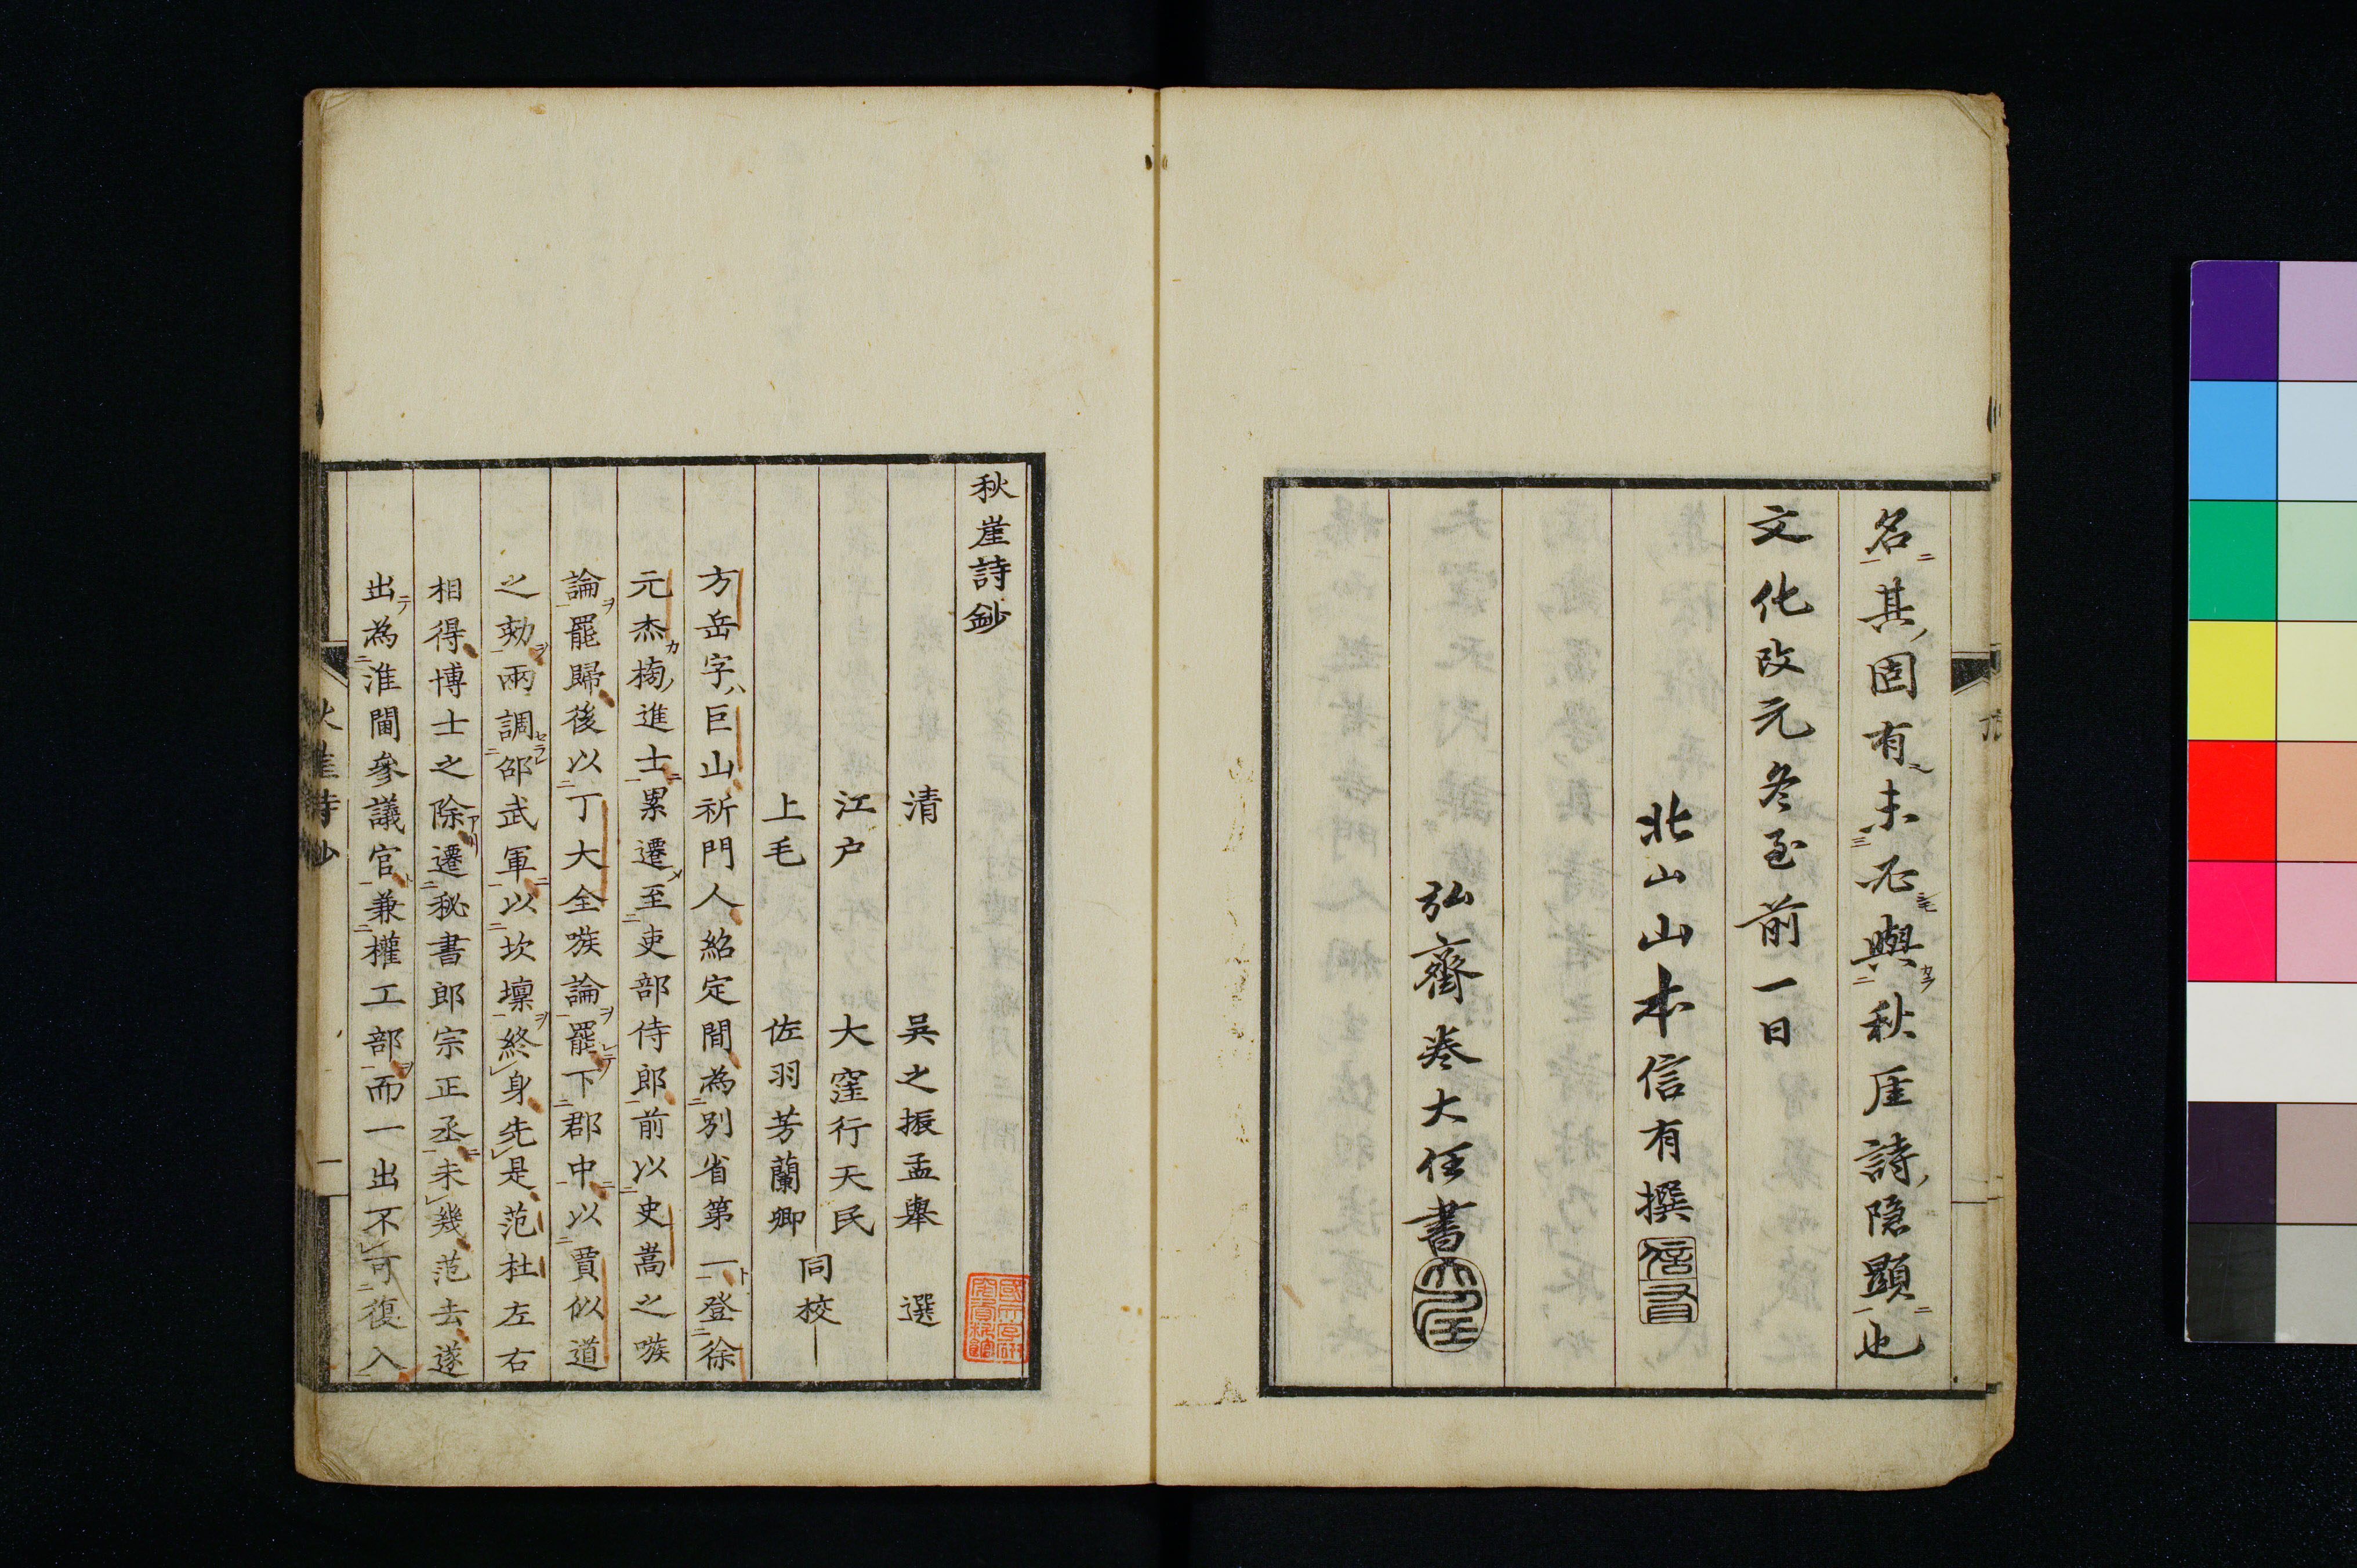 名其固有未必與秋厓詩隐顯也
文化改元冬至前一日
北山山本信有撰
信有
弘齋卷大任書
大任
秋崖詩鈔
清 吴之振孟舉 選
江户 大窪行天民
上毛 佐羽芳蘭卿
同校
方岳字巨山祈門人紹定間為別省第一登徐
元杰榜進士累遷至吏部侍郎前以史嵩之嗾
論罷歸後以丁大全嗾論罷下郡中以賈似道
之劾兩調邵武軍以坎壈終身先是范杜左右
相得博士之除遷秘書郎宗正丞未幾范去遂
出為淮閫參議官兼權工部而一出不可復入
秋崖詩鈔
一